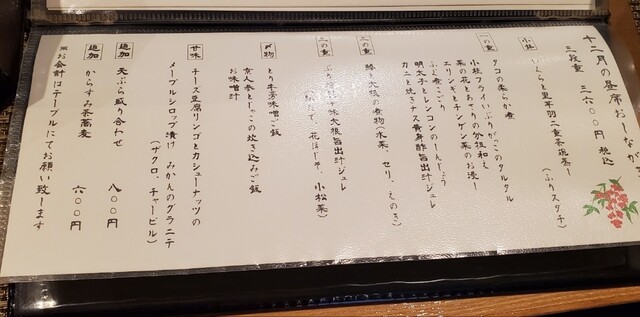 十二月の昼席おしながき
三段重 三六〇〇円 税込
小鉢
いくらと里芋羽二重茶碗蒸し
(ふりスダチ)
一の重
タコの柔らか煮
小柱フライいぶりがっこのタルタル
菜の花とあさりの加保和え
エリンギとチンゲン菜のお浸し
ふぐ煮こごり
明太子とレンコンのしんじょう
カニと焼きナス黄身酢旨出汁ジュレ
二の重
と大根の煮物(水菜、セリ、えのき)
三の重
ぶり 大根旨出汁ジュレ
花 小松菜)
〆物
とり牛蒡味噌ご飯
京人参とじゃこの炊き込みご飯
お味噌汁
甘味
チーズ豆腐リンゴとカシューナッツの
メープルシロップ漬け みかんのグラニテ
(ザクロ、チャービル)
追加 天ぷら盛り合わせ 八〇〇円
追加 からすみ茶蕎麦 六〇〇円
※お会計はテーブルにてお願い致します